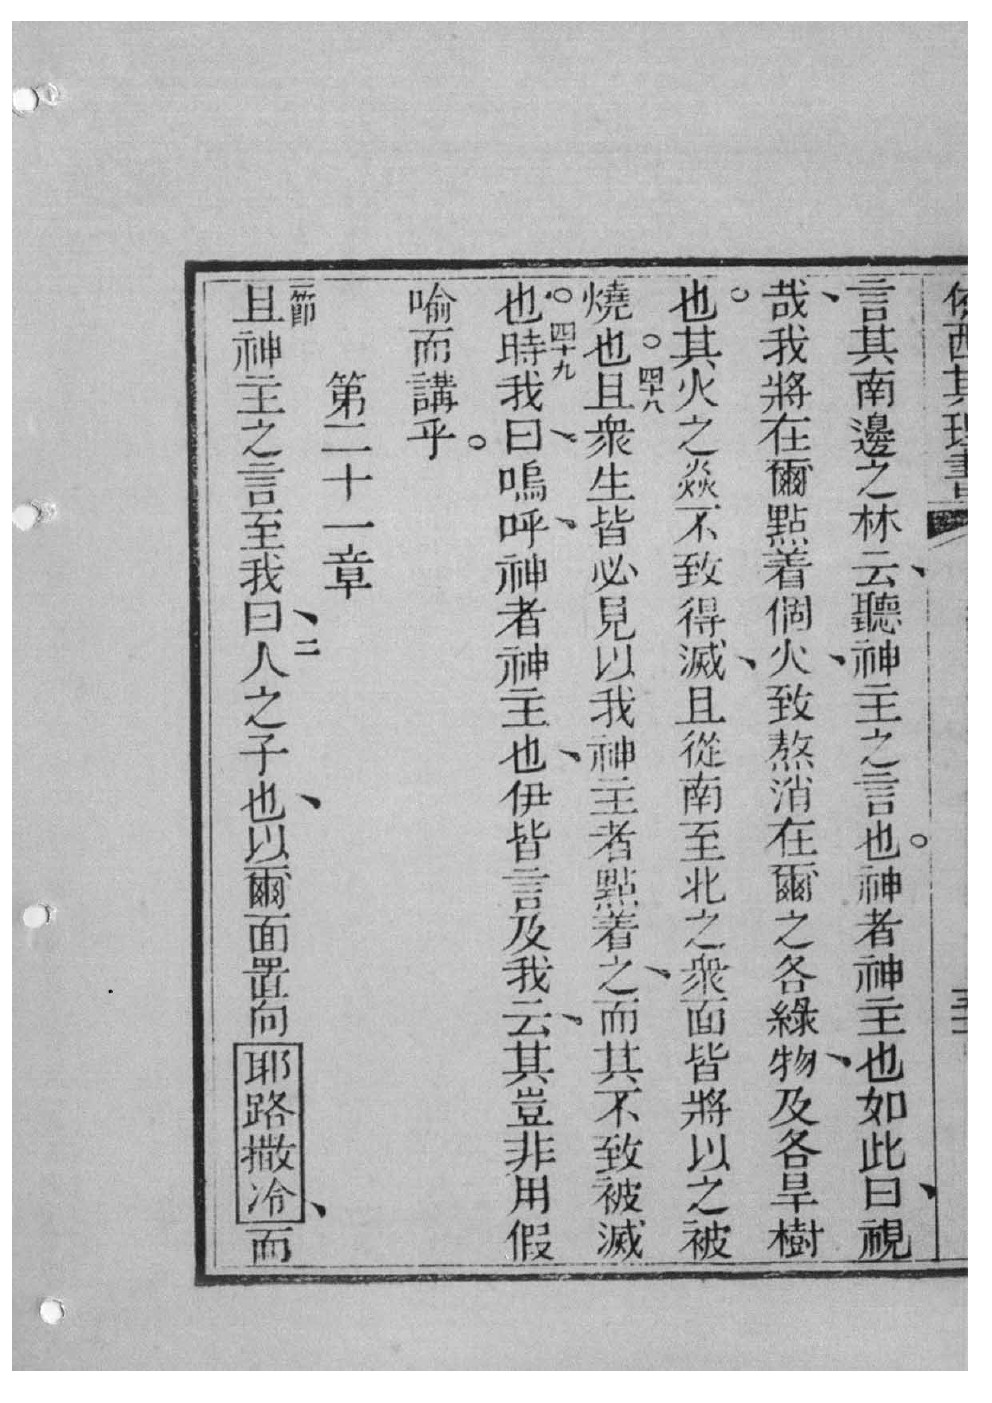 西其理書
言其南邊之林云、聽神主之言也。神者神主也如此曰、視
哉、我將在爾點着個火、致熬消在爾之各綠物、及各旱樹
也。其火之焱不致得滅、且從南至北之衆面皆將以之被
燒也。四十八且衆生皆必見以我神主者點着之、而其不致被滅
也。四十九時我曰、嗚呼、神者神主也、伊皆言及我云、其豈非用假
喻而講乎。
第二十一章
一節且神主之言至我曰、二人之子也、以爾面置向耶路撒冷、而